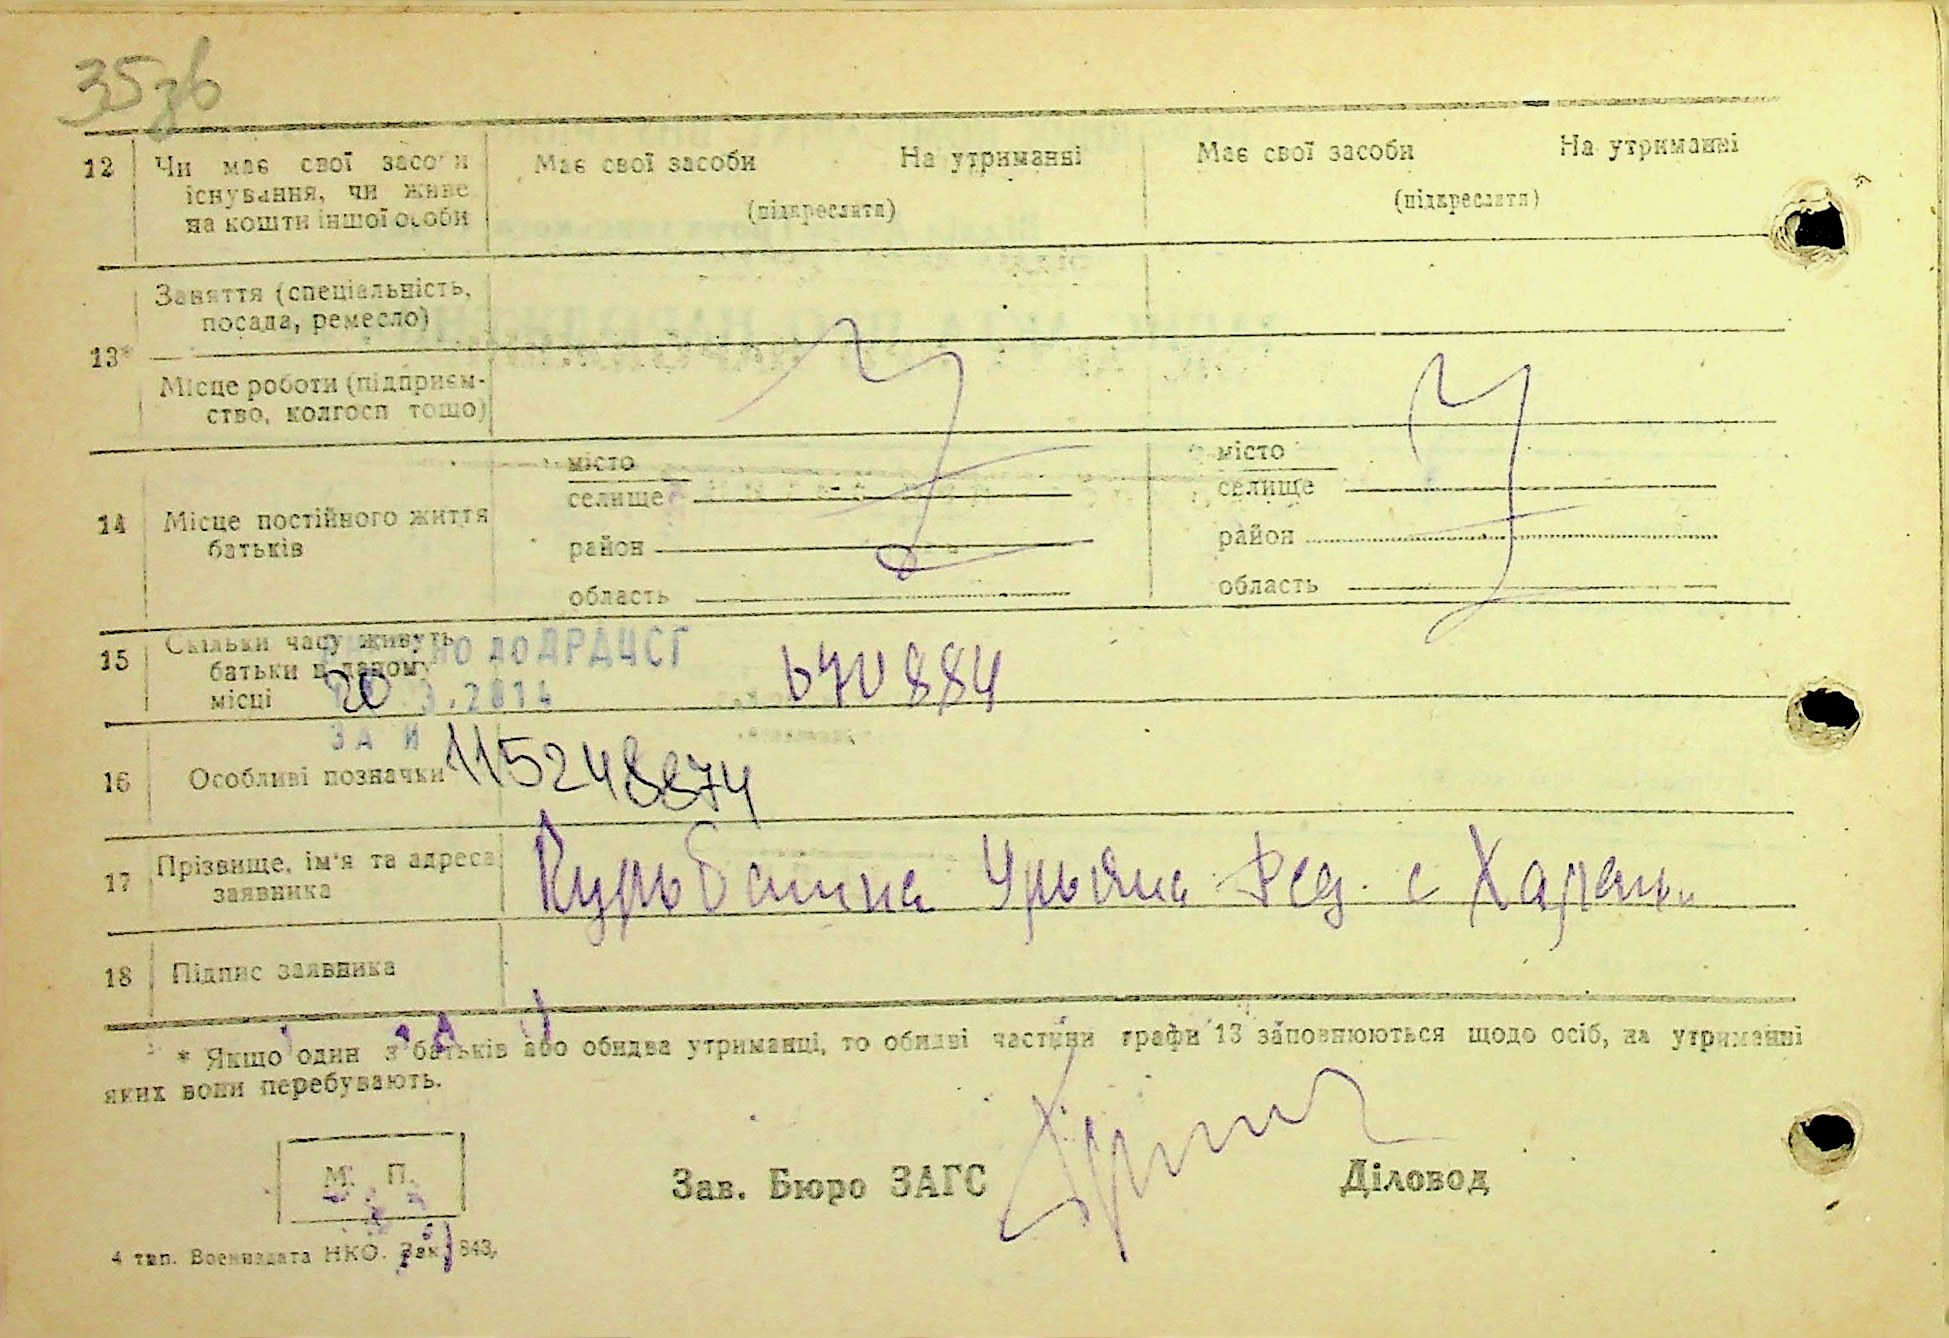 35зв
12 Чи має свої засоби Має свої засоби На утриманні Має свої засоби На утриманні
існування, чи живе (підкреслити) (підкреслити)
на кошти іншої особи
Заняття (спеціальність,
посада, ремесло)
13*
Місце роботи (підприєм-
ство, колгосп тощо)
місто місто
селище селище
14 Місце постійного життя
батьків
район район
область область
15 Скільки часу живуть
батьки в даному
місці
до ДРАЦСГ
20 3.2014
ЗА И 115248874
16 Особливі позначки
17 Прізвище, ім'я та адреса
заявника
Курбатина Ульяна Фед. с
18 Підпис заявника
* Якщо один з батьків або обидва утриманці, то обидві частини графи 13 заповнюються щодо осіб, на утриманні
яких вони перебувають.
М. П.
Зав. Бюро ЗАГС Діловод
4 тип. Воениздата НКО. Зак. 843.